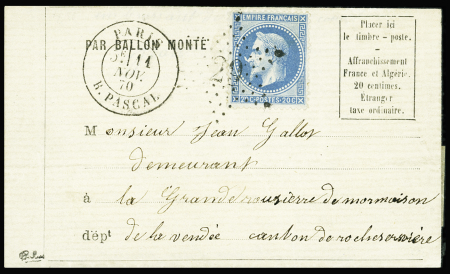 PAR BALLON MONTÉ
PARIS
11
NOV.
70
R. PASCAL
EMPIRE FRANÇAIS
20 C POSTES 20 C
Placer ici
le timbre-poste.
Affranchissement
France et Algérie.
20 centimes.
Étranger
taxe ordinaire.
Monsieur Jean Gallot
demeurant
à la Grande rousierre de mormaison
dépt de la vendée canton de rocheservière